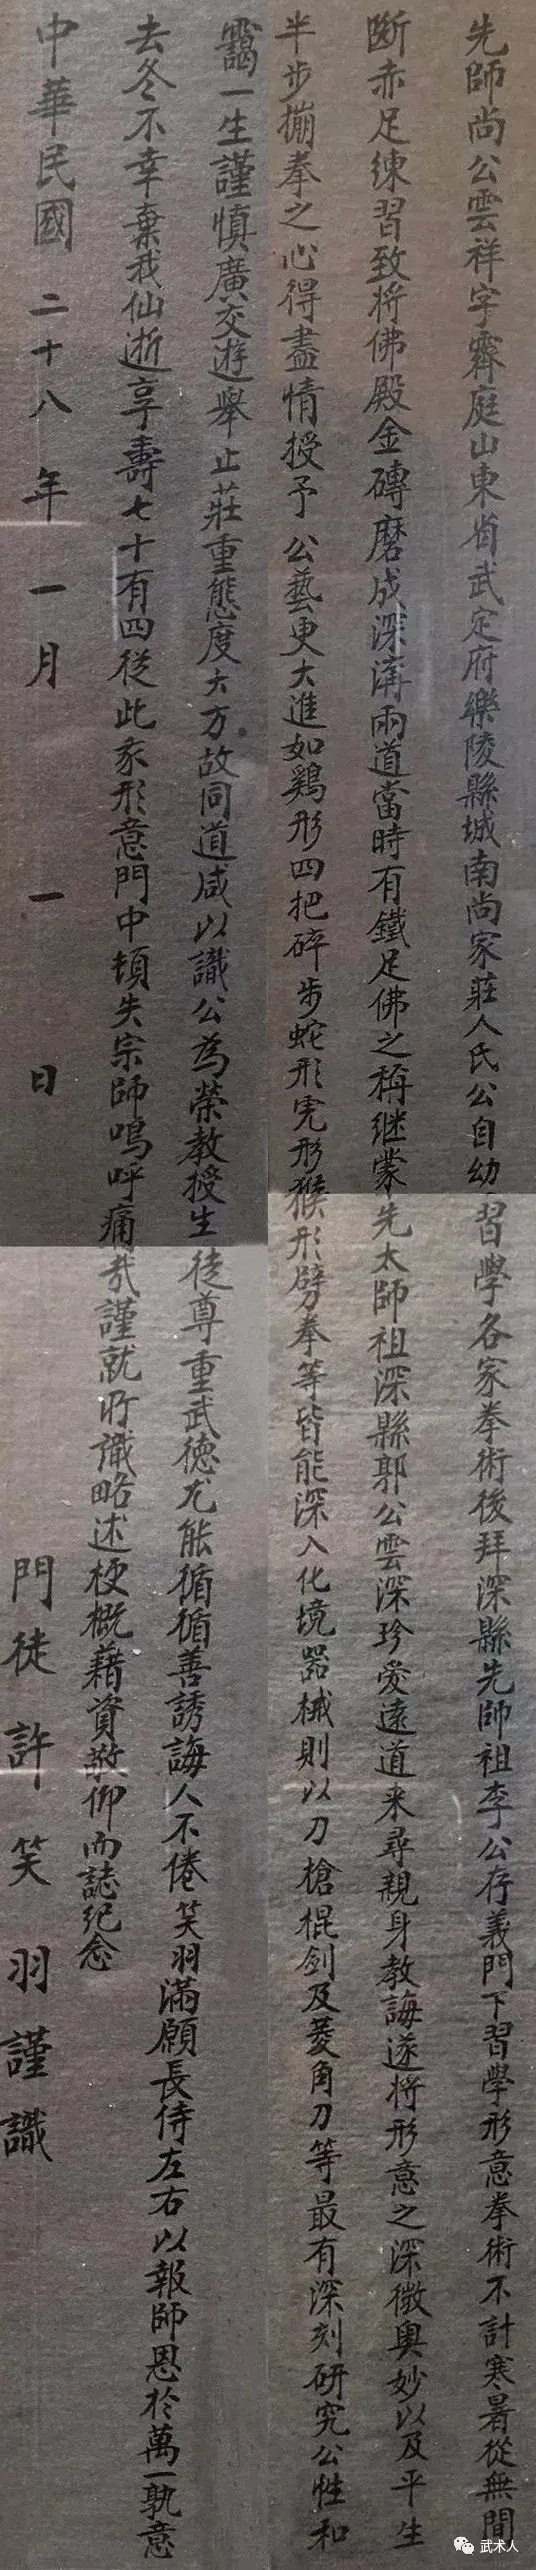 先師尚公雲祥字霽庭山東省武定府樂陵縣城南尚家莊人氏公自幼習學各家拳術後拜深縣先師祖李公存義門下習學形意拳術不計寒暑從無間
斷赤足練習致將佛殿金磚磨成深溝兩道當時有鐵足佛之稱继蒙先太師祖深縣郭公雲深珍愛遠道来尋親身教誨遂將形意之深微奥妙以及平生
半步掤拳之心得盡情授予公藝更大進如鷄形四把碎步蛇形虎形猴形劈拳等皆能深入化境器械則以刀槍棍剑及菱角刀等最有深刻研究公性和
靄一生謹慎廣交遊舉止莊重態度大方故同道咸以識公為榮教授生徒尊重武德尤能循循善誘誨人不倦笑羽滿願長侍左右以報師恩於萬一孰意
去冬不幸棄我仙逝享壽七十有四從此我形意門中頓失宗師嗚呼痛哉謹就所識略述梗概藉資敬仰而誌紀念
中華民國二十八年一月一日
門徒許笑羽謹識
武术人